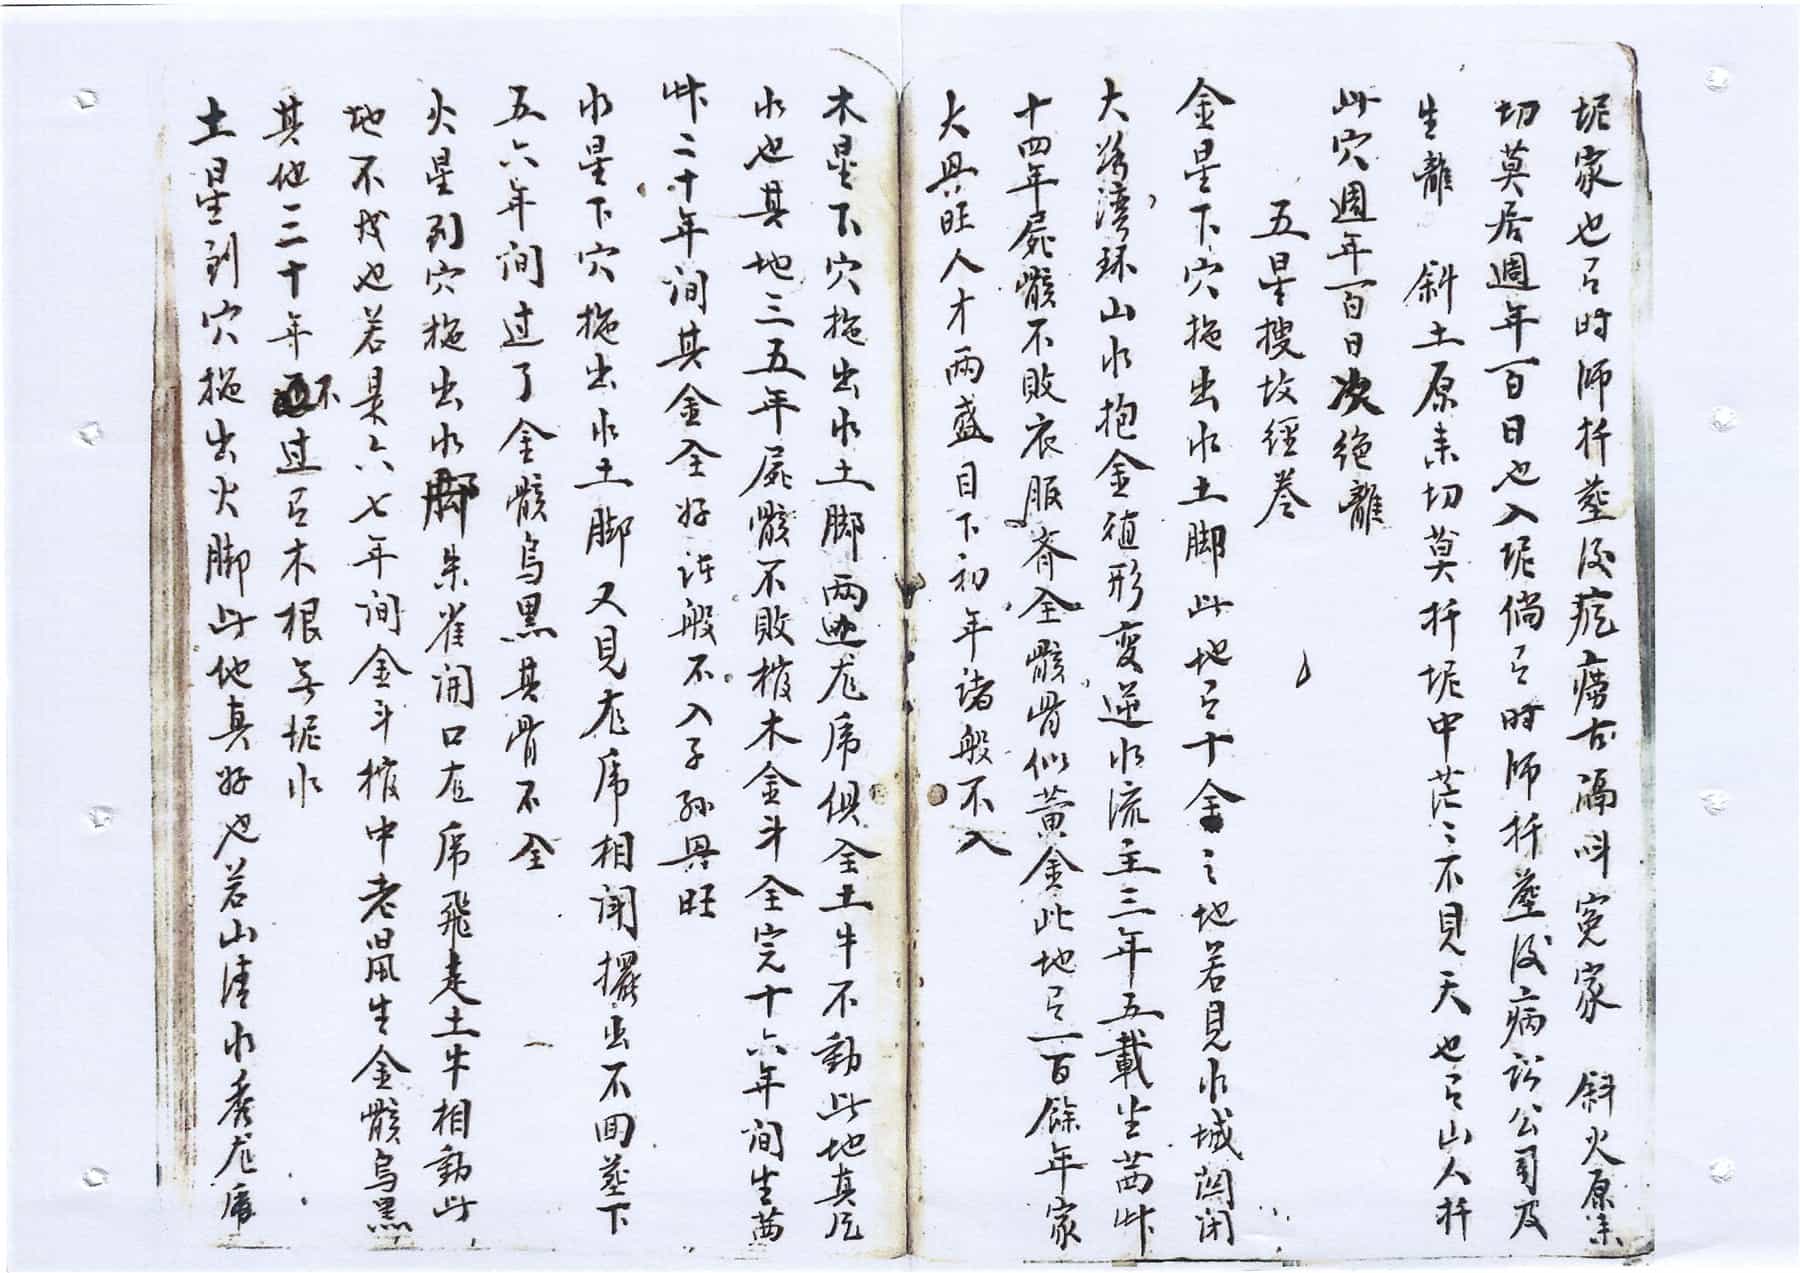 坭家也己时师扦塟後疙癆古隔呌冤家 斜火原来
切莫居週年百日也入坭倘己时师扦塟後病讼公司及
生龍 斜土原来切莫扦坭中茫〻不見天也己山人扦
此穴週年百日次绝離
五星搜坟經卷
金星下穴拖出水土脚此地己十全之地若見水城関闭
大湾环山水抱金殖形变逆水流主三年五載生茜艸
十四年屍骸不敗衣服斉全骸骨似黄金此地己一百餘年家
大興旺人才两盛目下初年诸般不入
木星下穴拖出水土脚两边龙虎俱全土牛不動此地真
水也其地三五年屍骸不敗棺木金斗全完十六年间生茜
艸二十年间其金全好诸般不入子孙興旺
水星下穴拖出水土脚又見龙虎相闹擺出不回塟下
五六年间过了金骸乌黑其骨不全
火星到穴拖出水脚朱雀開口龙虎飛走土牛相動此
地不好也若是六七年间金斗棺中老鼠生金骸乌黑
其他二十年不过己木根与坭水
土星到穴拖出火脚此他真好也若山清水秀龙虎